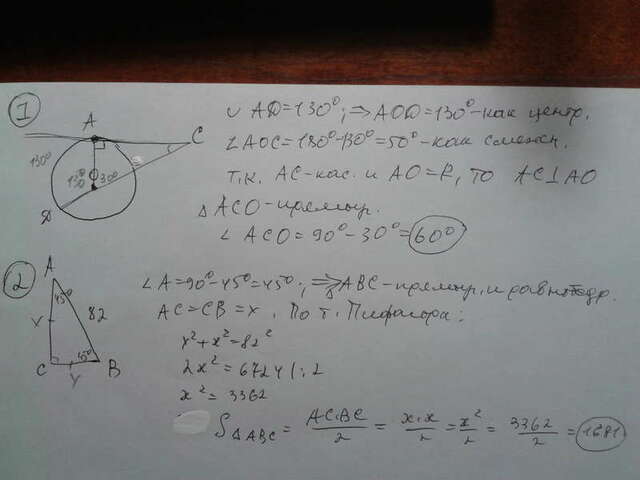 1
A
C
130°
130
30°
D
◡ AD = 130°; ⇒ AOD = 130° - как центр.
∠AOC = 180° - 130° = 50° - как смежн.
т.к. AC - кас. и AO = R, то AC ⊥ AO
△ ACO - прямоуг.
∠ ACO = 90° - 30° = 60°
2
A
45°
82
x
C
45°
B
∠A = 90° - 45° = 45°; ⇒ △ABC - прямоуг. и равнобедр.
AC = CB = x. По т. Пифагора:
x² + x² = 82²
2x² = 6724 | : 2
x² = 3362
S△ABC = AC·BC/2 = x·x/2 = x²/2 = 3362/2 = 1681